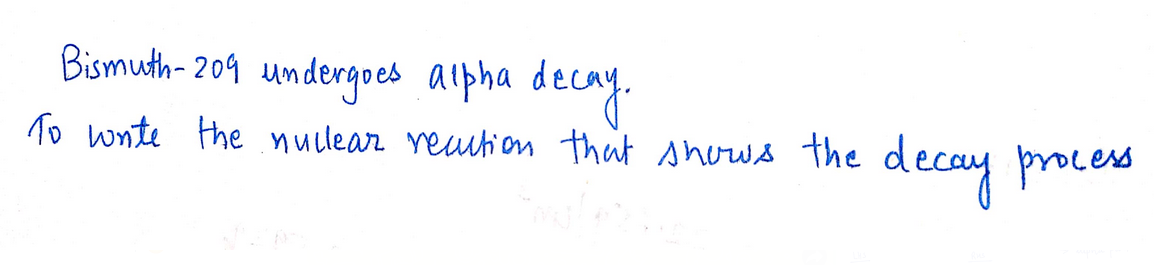 Bismuth-209 undergoes alpha decay.
To write the nuclear reaction that shows the decay process